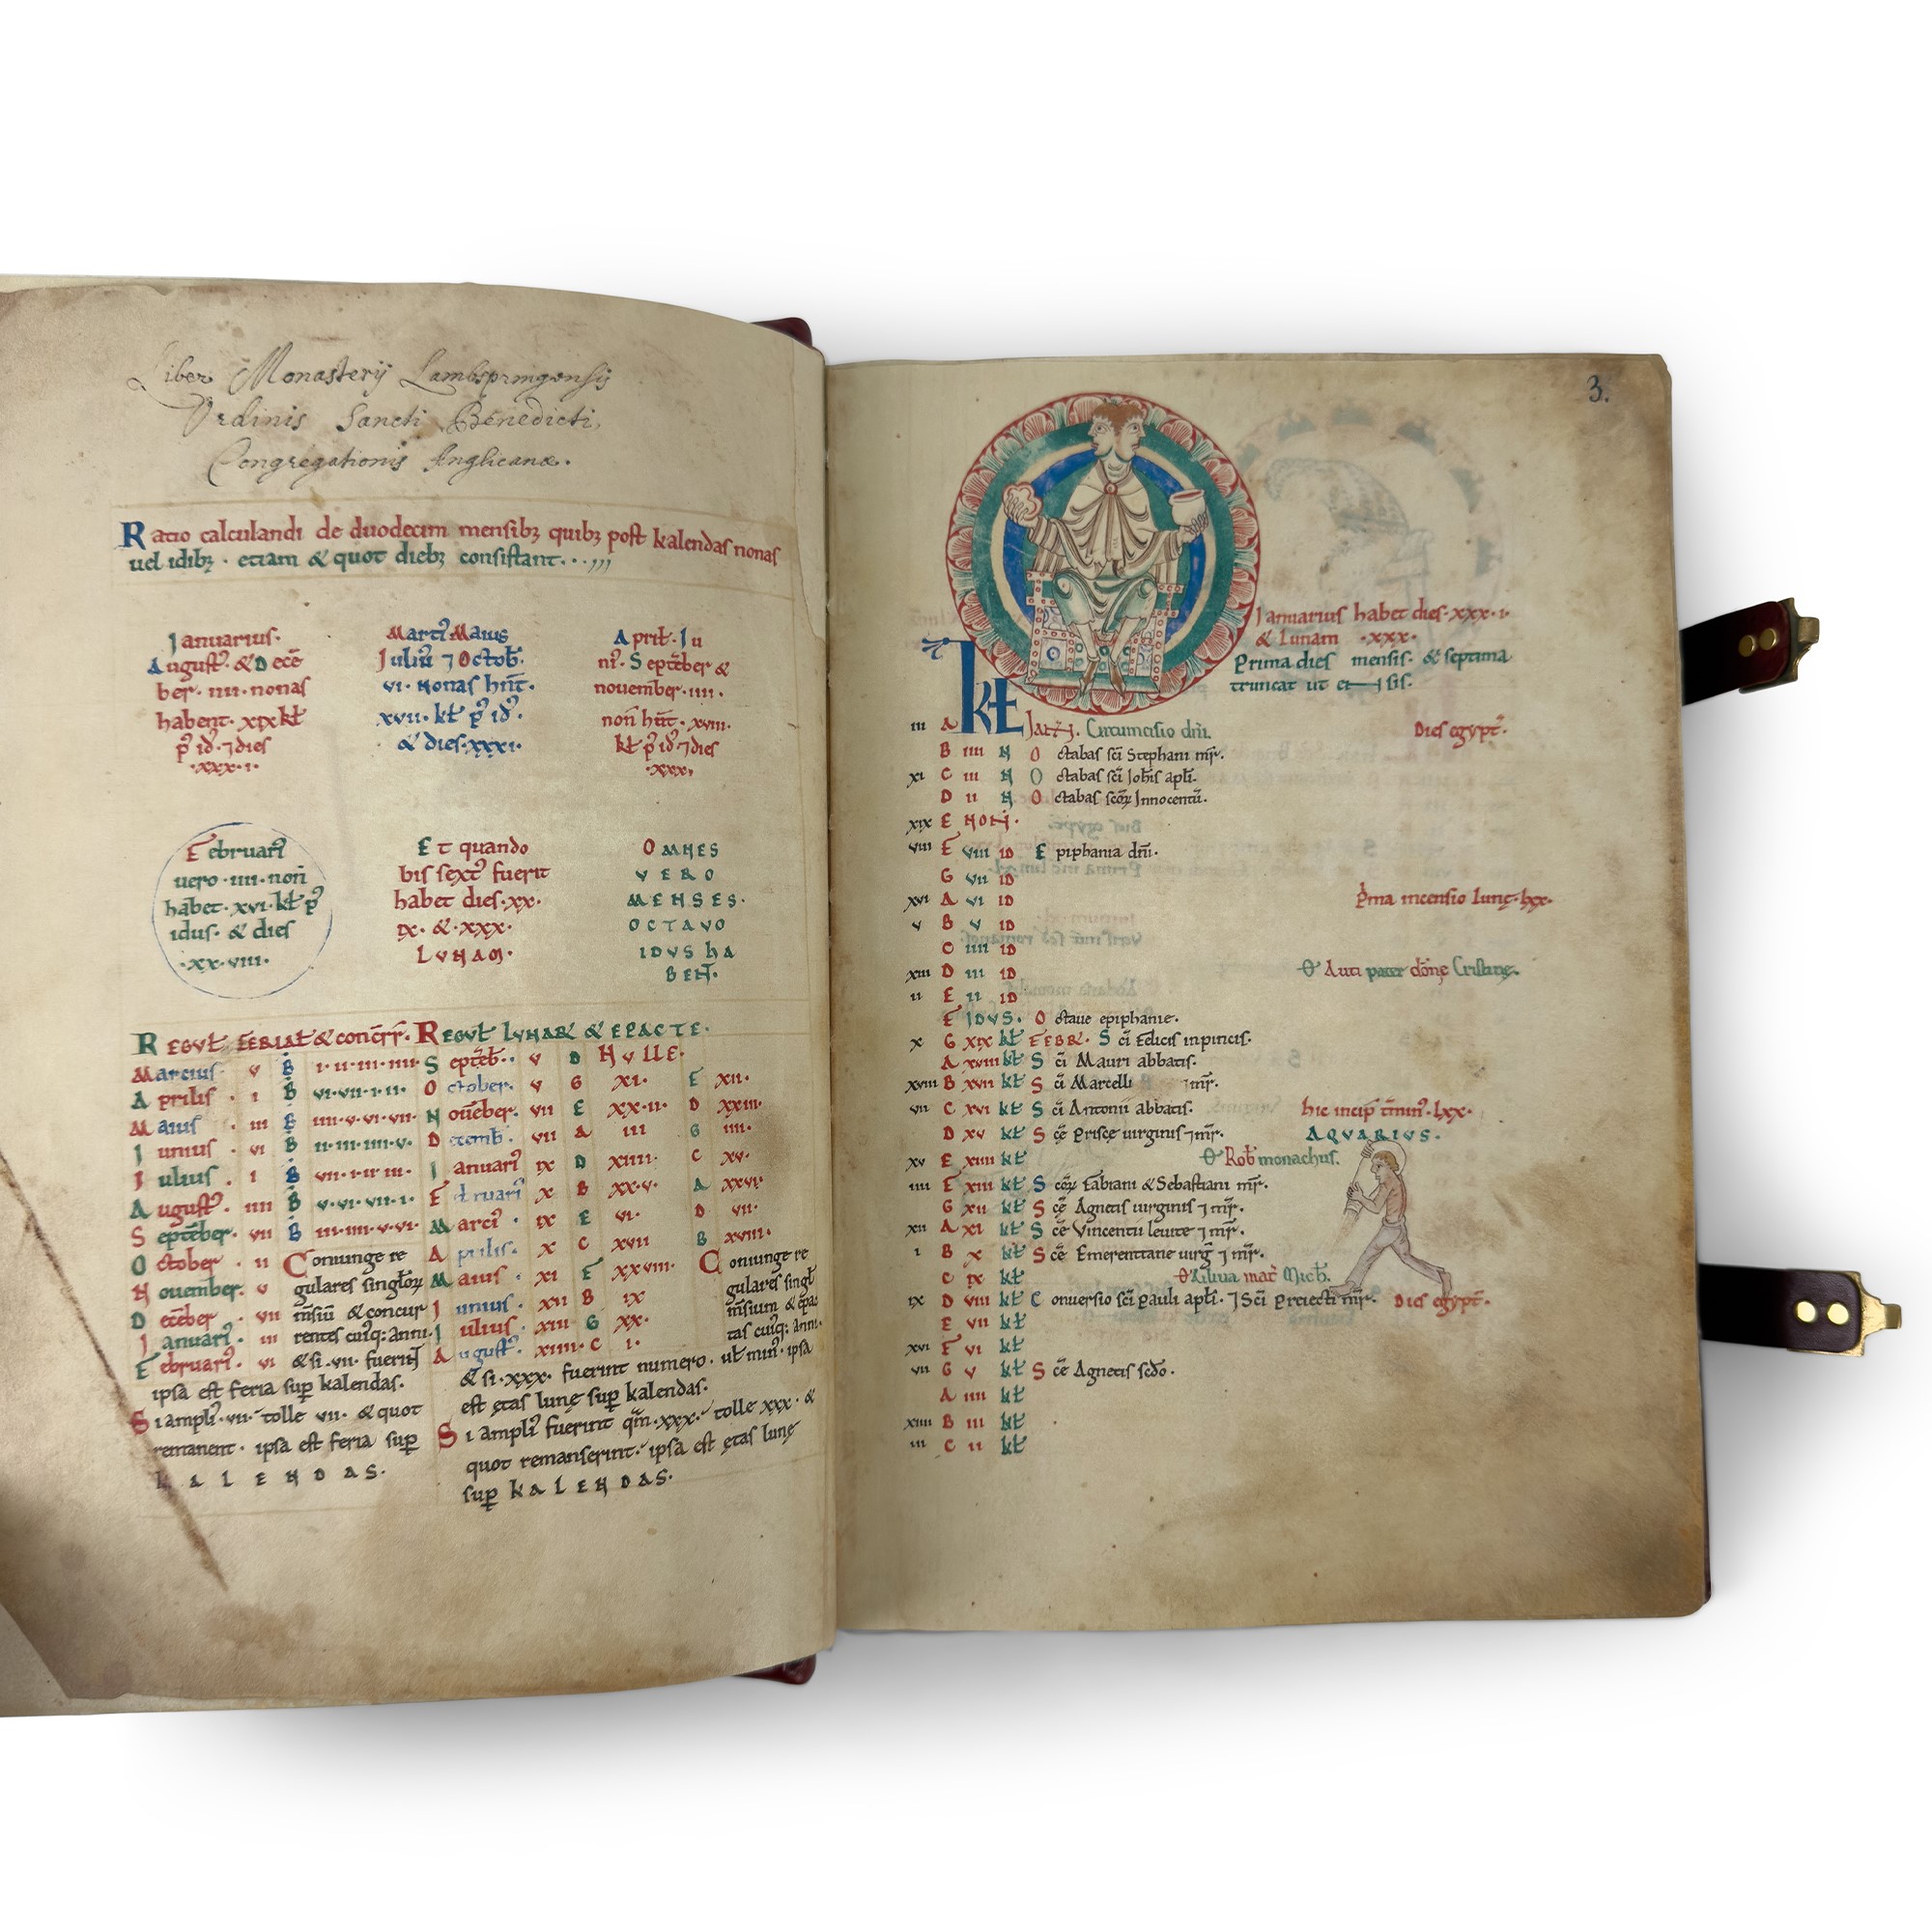 Liber Monasterij Lambspringensis
Ordinis Sancti Benedicti,
Congregationis Anglicanæ.
Ratio calculandi de duodecim mensibꝫ quibꝫ post kalendas nonas
uel idibꝫ · etiam & quot diebꝫ consistant · · · ,,,
Ianuarius ·
Augustꝰ · & Decē
ber · iiii · nonas
habent · xix kł
pꝰ id̄ · ⁊ dies
· xxx · i ·
Martꝰ Maius
Iuliuꝰ ⁊ Octob̄ ·
vi · Nonas hn̄t ·
xvii · kł pꝰ id̄ ·
& dies · xxxi ·
April̄ · Iu
niꝰ · Septēber &
nouember · iiii ·
noñ hn̄t · xviii ·
kł pꝰ id̄ · ⁊ dies
· xxx ·
Februariꝰ
uero · iiii · noñ
habet · xvi · kł pꝰ
idus · & dies
· xx · viii ·
Et quando
bis sextꝰ fuerit
habet dies · xx ·
ix · & · xxx ·
LVNAM ·
OMNES
VERO
MENSES ·
OCTAVO
IDVS HA
BEN̄T ·
REGVŁ FERIAŁ & concr̄r̄ · REGVŁ LVNAR̄ & EPACTE ·
Marcius · v B i · ii · iii · iiii · Septēb̄ · v D NVLLE ·
Aprilis · i B vi · vii · i · ii · October · v G XI · F XII ·
Maius · iii B iiii · v · vi · vii · Nouēber · vii E XX · II · D XXIII ·
Iunius · vi B ii · iii · iiii · v · Decemb̄ · vii A III G IIII ·
Iulius · i B vii · i · ii · iii · Ianuariꝰ ix D XIIII · C XV ·
Augustꝰ · iiii B v · vi · vii · i · Februariꝰ x B XX · V · A XXVI ·
Septēber · vii B iii · iiii · v · vi · Marciꝰ · ix E VI · D VII ·
October · ii Coniunge re Aprilis · x C XVII B XVIII ·
Nouember · v gulares singlōꝝ Maius · xi F XXVIII · Coniunge re
Decēber · vii m̄siū & concur Iunius · xii B IX gulares singł
Ianuariꝰ · iii rentes cuiꝰq; anni · Iulius · xiii G XX · m̄sium & epac
Februariꝰ · vi & si · vii · fuerint Augustꝰ · xiiii · C I · tas cuiꝰq; anni ·
ipsa est feria sup̄ kalendas · & si · xxx · fuerint numero · ułt minꝰ · ipsa
Si amplꝰ · vii · tolle vii · & quot est ętas lunę sup̄ kalendas ·
remanent · ipsa est feria sup̄ Si amplꝰ fuerint qm̄ · xxx · tolle xxx · &
KALENDAS · quot remanserint · ipsa est ętas lunę
sup̄ KALENDAS ·
3.
Ianuarius habet dies · xxx · i ·
& Lunam · xxx ·
Prima dies mensis · & septima
truncat ut ensis ·
iii A KŁ IAN̄ · Circumcisio dn̄i · Dies egyptꝰ ·
B iiii N Octabas sc̄i Stephani mr̄ ·
xi C iii N Octabas sc̄i Ioh̄is apl̄i ·
D ii N Octabas sc̄oꝝ Innocentū ·
xix E NON̄ ·
viii F viii ID Epiphania dn̄i ·
G vii ID
xvi A vi ID Pͥma incensio lunę · lxx ·
v B v ID
C iiii ID
xiii D iii ID Aui pater dōnę Cristinę ·
ii E ii ID
F IDVS · Octaue epiphanie ·
x G xix kł FEBR̄ · Sc̄i Felicis inpincis ·
A xviii kł Sc̄i Mauri abbatis ·
xviii B xvii kł Sc̄i Marcelli ⁊ mr̄ ·
vii C xvi kł Sc̄i Antonii abbatis · hic incip̄ t̄minꝰ · lxx ·
D xv kł Sc̄ę Priscę uirginis ⁊ mr̄ · AQVARIVS ·
xv E xiiii kł Rob̄ monachus ·
iiii F xiii kł Sc̄oꝝ Fabiani & Sebastiani mr̄ ·
G xii kł Sc̄ę Agnetis uirginis ⁊ mr̄ ·
xii A xi kł Sc̄ę Vincentii leuite ⁊ mr̄ ·
i B x kł Sc̄ę Emerentiane uirḡ ⁊ mr̄ ·
C ix kł Ailiua mat̄ Mich̄ ·
ix D viii kł Conuersio sc̄i Pauli apl̄i · ⁊ Sc̄i Preiecti mr̄ · Dies egyptꝰ ·
E vii kł
xvi F vi kł
vii G v kł Sc̄ę Agnetis scd̄o ·
A iiii kł
xiiii B iii kł
iii C ii kł